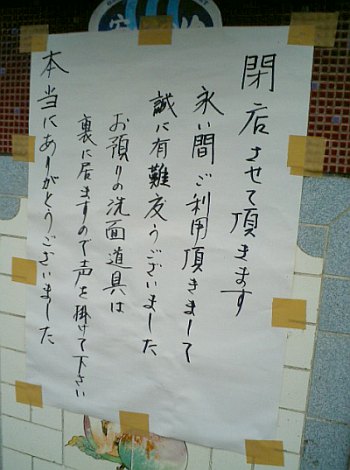 閉店させて頂きます
永い間ご利用頂きまして
誠に有難度うございました
お預りの洗面道具は
裏に居ますので声を掛けて下さい
本当にありがとうございました